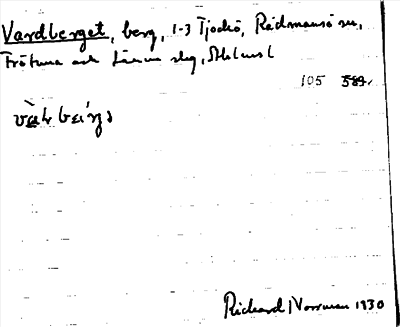 Vardberget, berg, 1-3 Tjockö, Rådmansö sn,
Frötuna och Länna slg, Sthlms l
105 589.
Richard Norrman 1930